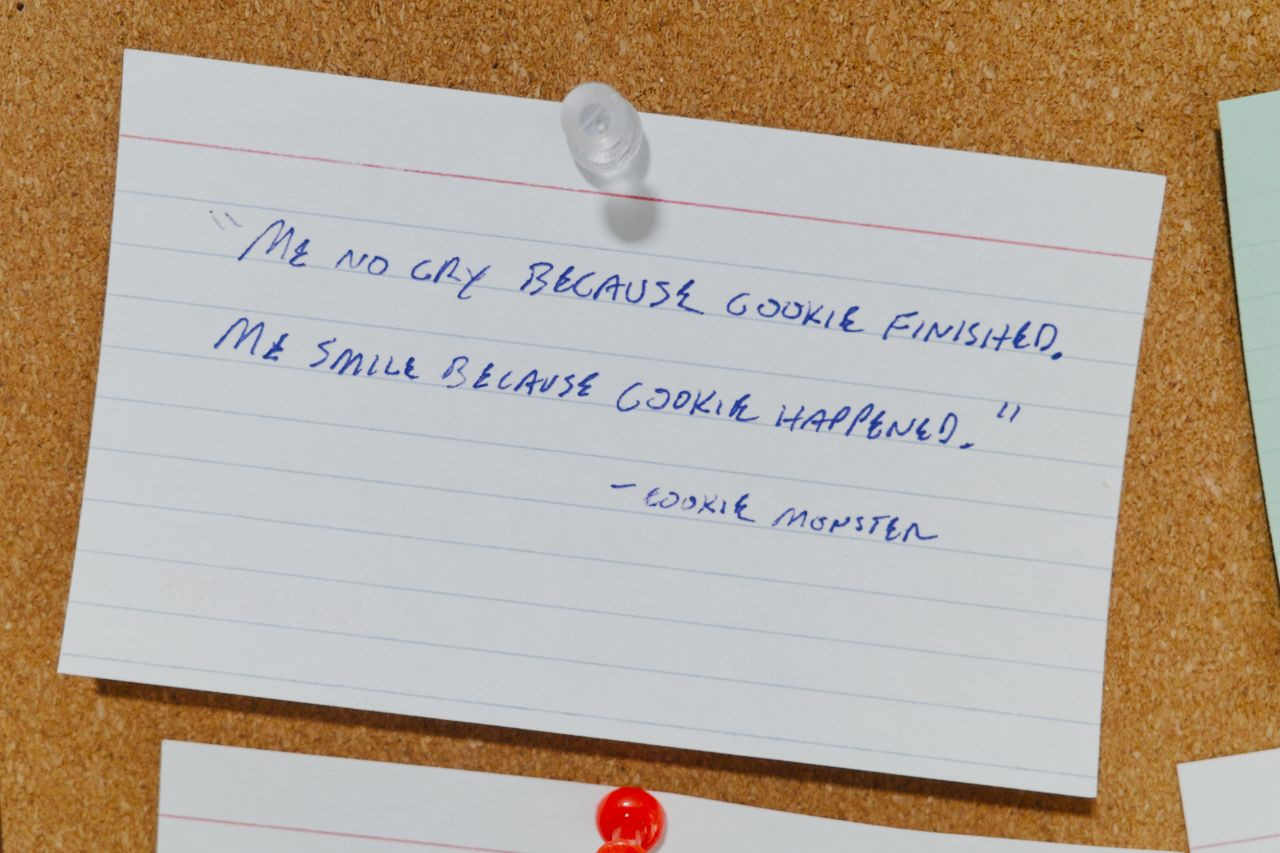 "ME NO CRY BECAUSE COOKIE FINISHED.
ME SMILE BECAUSE COOKIE HAPPENED."
- COOKIE MONSTER